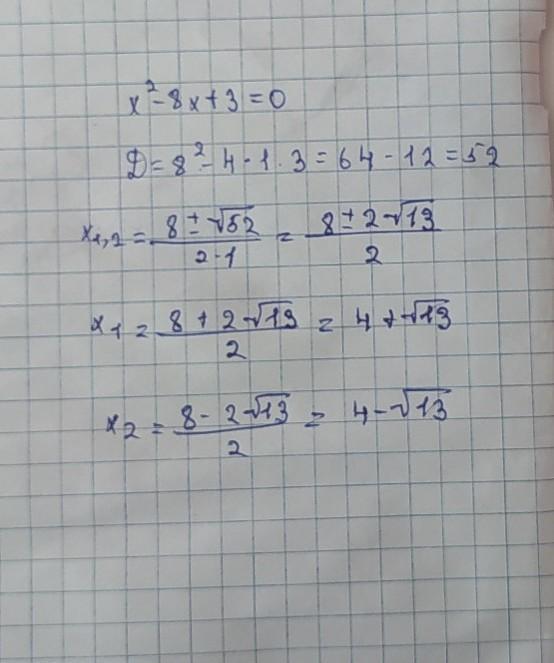 x² - 8x + 3 = 0
D = 8² - 4 · 1 · 3 = 64 - 12 = 52
x₁,₂ = (8 ± √52)/(2 · 1) = (8 ± 2√13)/2
x₁ = (8 + 2√13)/2 = 4 + √13
x₂ = (8 - 2√13)/2 = 4 - √13